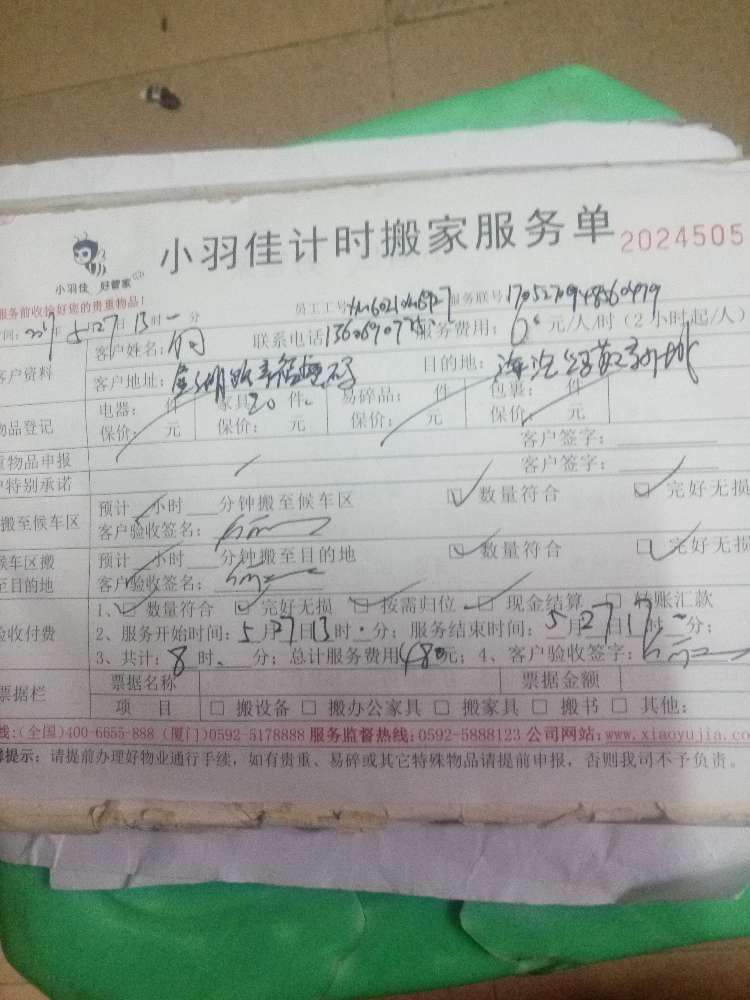 小羽佳计时搬家服务单 2024505
小羽佳 好管家
服务前收捡好您的贵重物品!
员工工号 服务联号
间: 年 5月27日13时一分 联系电话 服务费用: 元/人/时(2小时起/人)
客户资料 客户姓名:何
客户地址: 目的地:
物品登记 电器: 件 家具20件 易碎品: 件 包裹: 件
保价: 元 保价: 元 保价: 元 保价: 元
客户签字:
重物品申报 客户签字:
户特别承诺
搬至候车区 预计 小时 分钟搬至候车区 ☑数量符合 ☑完好无损
客户验收签名:
候车区搬 预计 小时 分钟搬至目的地 ☑数量符合 ☑完好无损
至目的地 客户验收签名:
验收付费 1、☑数量符合 ☑完好无损 ☑按需归位 ☑现金结算 □转账汇款
2、服务开始时间:5月27日13时 分; 服务结束时间:5月27日17时一分;
3、共计:8时 分; 总计服务费用480元; 4、客户验收签字:
票据栏 票据名称 票据金额
项 目 □搬设备 □搬办公家具 □搬家具 □搬书 □其他:
线:(全国)400-6655-888 (厦门)0592-5178888 服务监督热线:0592-5888123 公司网站:www.xiaoyujia.com
提示: 请提前办理好物业通行手续,如有贵重、易碎或其它特殊物品请提前申报,否则我司不予负责。